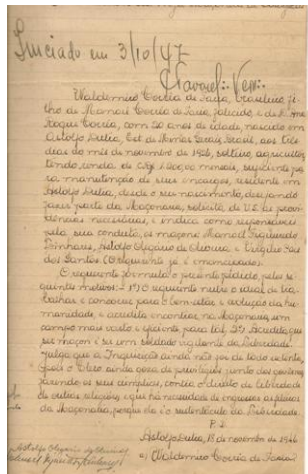 Iniciado em 3/10/47
Waldemiro Corrêa de Faria, brasileiro, fi-
lho de Manoel Corrêa de Faria, falecido, e de D. Ana
Roque Corrêa, com 20 anos de idade, nascido em
Astolfo Dutra, Est. de Minas Gerais, Brasil, aos três
dias do mês de novembro de 1926, solteiro, agricultor,
tendo renda de mensais, suficiente pa-
ra manutenção de seus encargos, residente em
Astolfo Dutra, desde o seu nascimento, desejando
fazer parte da Maçonaria, solicita de V.S. as provi-
dências necessárias, e indica como responsáveis
pela sua conduta, os maçons Manoel Figueiredo
Astolfo Olegário de Oliveira, e Virgílio
dos Santos (O requerente já é emancipado).
O requerente formula o presente pedido, pelos se-
guintes motivos: - 1º) O requerente nutre o ideal de tra-
balhar e concorrer para o bem estar e evolução da hu-
manidade, e acredita encontrar na Maçonaria, um
campo mais vasto e eficiente para tal. 2º) Acredita que
ser maçon é ser um soldado vigilante da Liberdade.
Julga que a Inquisição ainda não foi de todo extinta,
pois o Clero ainda goza de privilégios junto dos governos,
fazendo os seus cúmplices, contra o direito de liberdade
de outras religiões, e que há necessidade de engrossar as fileiras
da Maçonaria, porque ela é o sustentáculo da Liberdade.
Astolfo Dutra, 18 de novembro de 1946
Astolfo Olegario de Oliveira
a) Waldemiro Corrêa de Faria